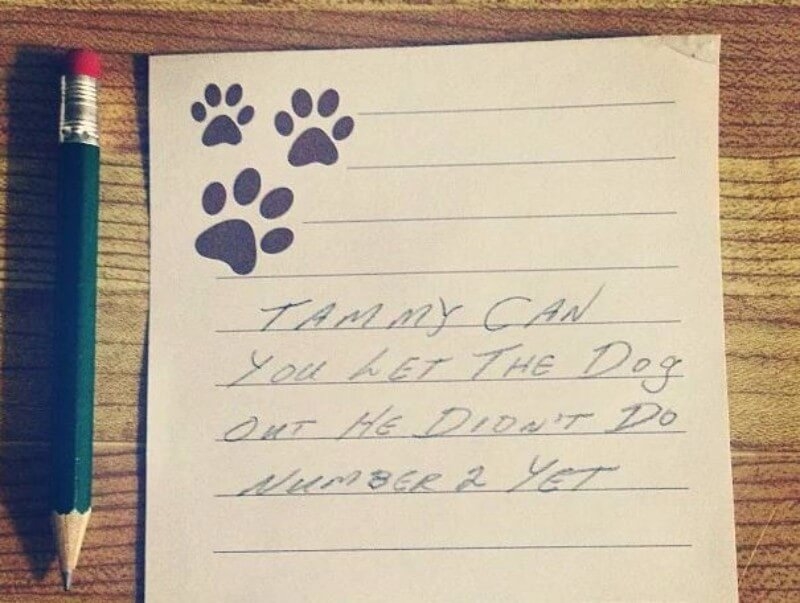 TAMMY CAN
YOU LET THE DOg
OUT HE DIDN'T DO
NUMBER 2 YET